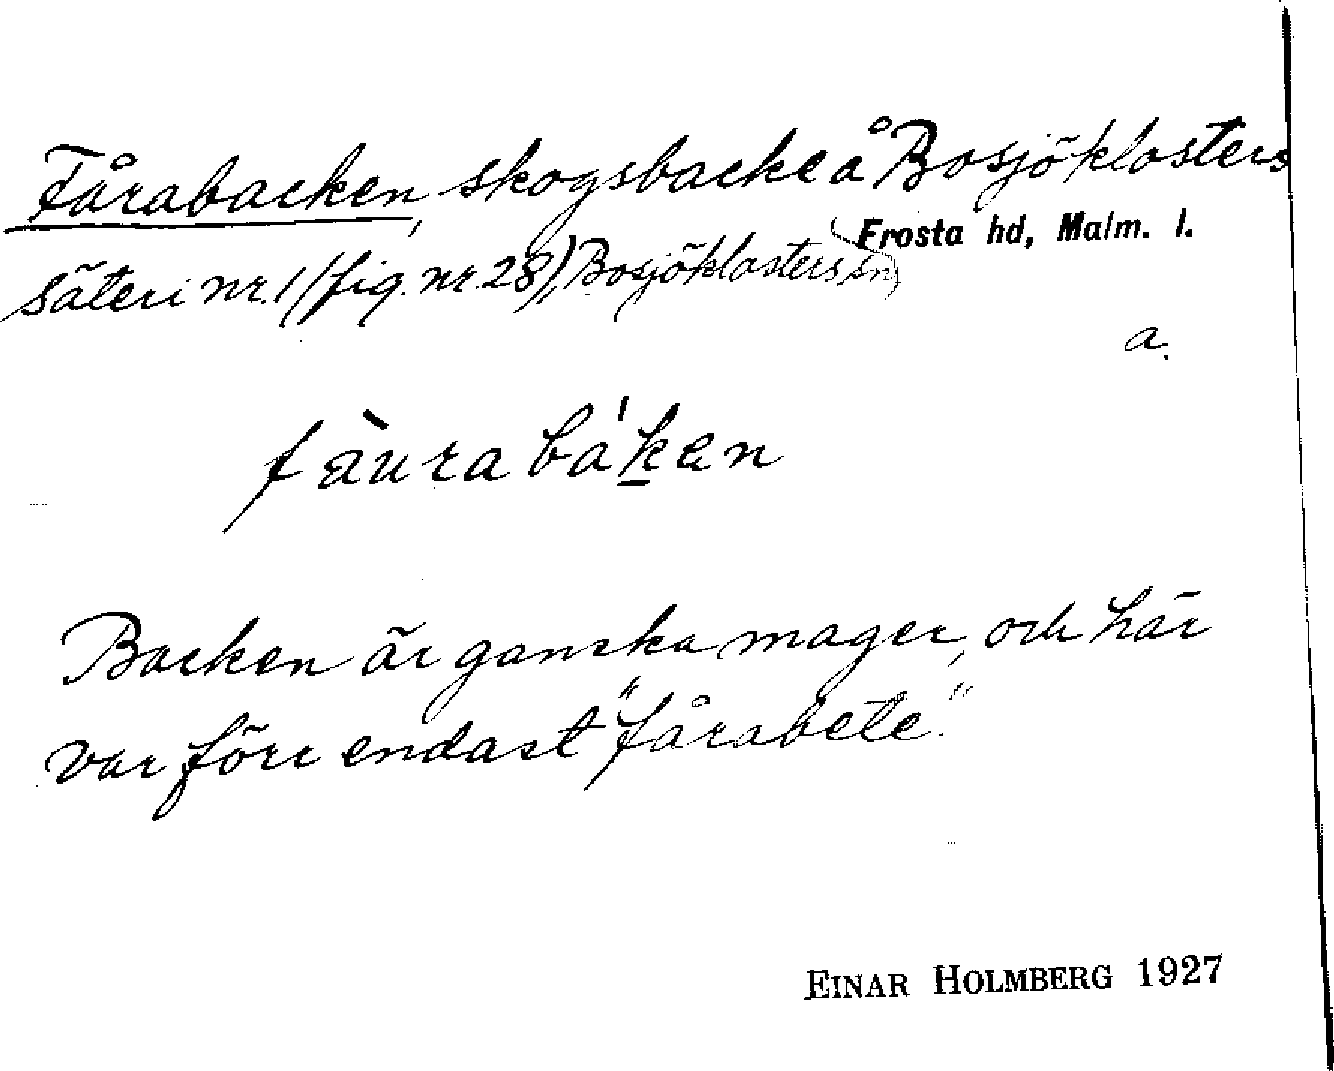 Fårabacken, skogsbacke å Bosjöklosters
Frosta hd, Malm. l.
säteri nr. 1 (fig. nr. 28), Bosjöklosters sn,
a.
fàurabáken
Backen är ganska mager, och här
var förr endast "fårabete."
EINAR HOLMBERG 1927